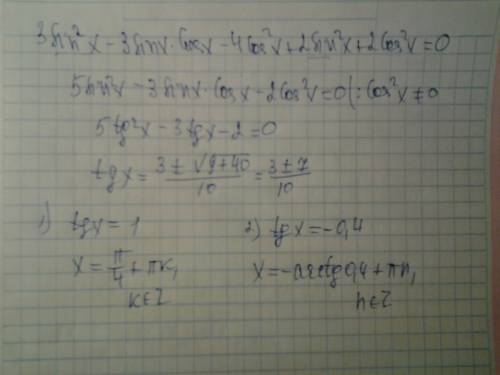 3sin²x - 3sinx·cosx - 4cos²x + 2sin²x + 2cos²x = 0
5sin²x - 3sinx·cosx - 2cos²x = 0 (: cos²x ≠ 0
5tg²x - 3tgx - 2 = 0
tgx = (3 ± √(9+40))/10 = (3 ± 7)/10
1) tgx = 1
x = π/4 + πk,
k∈Z
2) tgx = -0,4
x = -arctg0,4 + πn,
n∈Z